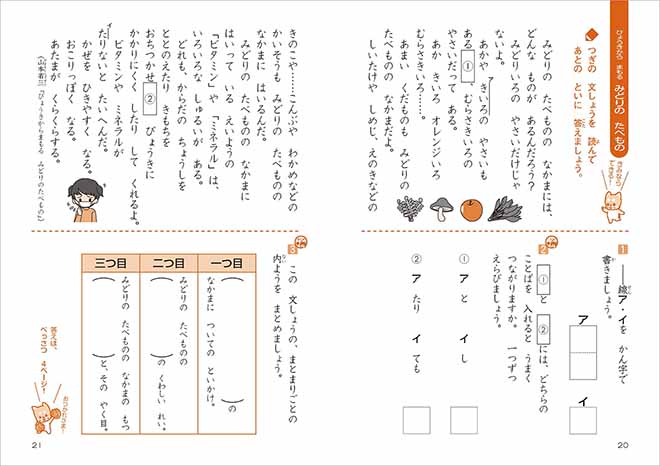 びょうきから まもる みどりの たべもの
つぎの 文しょうを 読んで
あとの といに 答えましょう。
できる！
みどりの たべものの なかまには、
どんな ものが あるんだろう？
みどりいろの やさいだけじゃ
ないよ。
あかや きいろの やさいも
ア
ある ① 、むらさきいろの
やさいだって ある。
あか きいろ オレンジいろ
むらさきいろ……。
あまい くだものも みどりの
たべものの なかまだよ。
しいたけや しめじ、えのきなどの
きのこや……こんぶや わかめなどの
かいそうも みどりの たべものの
なかまに はいるんだ。
みどりの たべものの なかまに
はいって いる えいようの
「ビタミン」や 「ミネラル」は、
いろいろな しゅるいが ある。
どれも、からだの ちょうしを
ととのえたり きもちを
おちつかせ ② びょうきに
かかりにくく したり して くれるよ。
ビタミンや ミネラルが
たりないと たいへんだ。
イ
かぜを ひきやすく なる。
おこりっぽく なる。
あたまが くらくらする。
1
――線ア・イを かん字で
書きましょう。
ア
イ
2
① と ② には、どちらの
ことばを 入れると うまく
つながりますか。一つずつ
えらびましょう。
① ア と イ し
② ア たり イ ても
3
この 文しょうの、まとまりごとの
内ようを まとめましょう。
一つ目
（ ）の
なかまに ついての といかけ。
二つ目
みどりの たべものの
（ ）の くわしい れい。
三つ目
みどりの たべものの なかまの もつ
（ ）と、その やく目。
答えは、
べっさつ 4ページ！
おつかれさま！
20
21